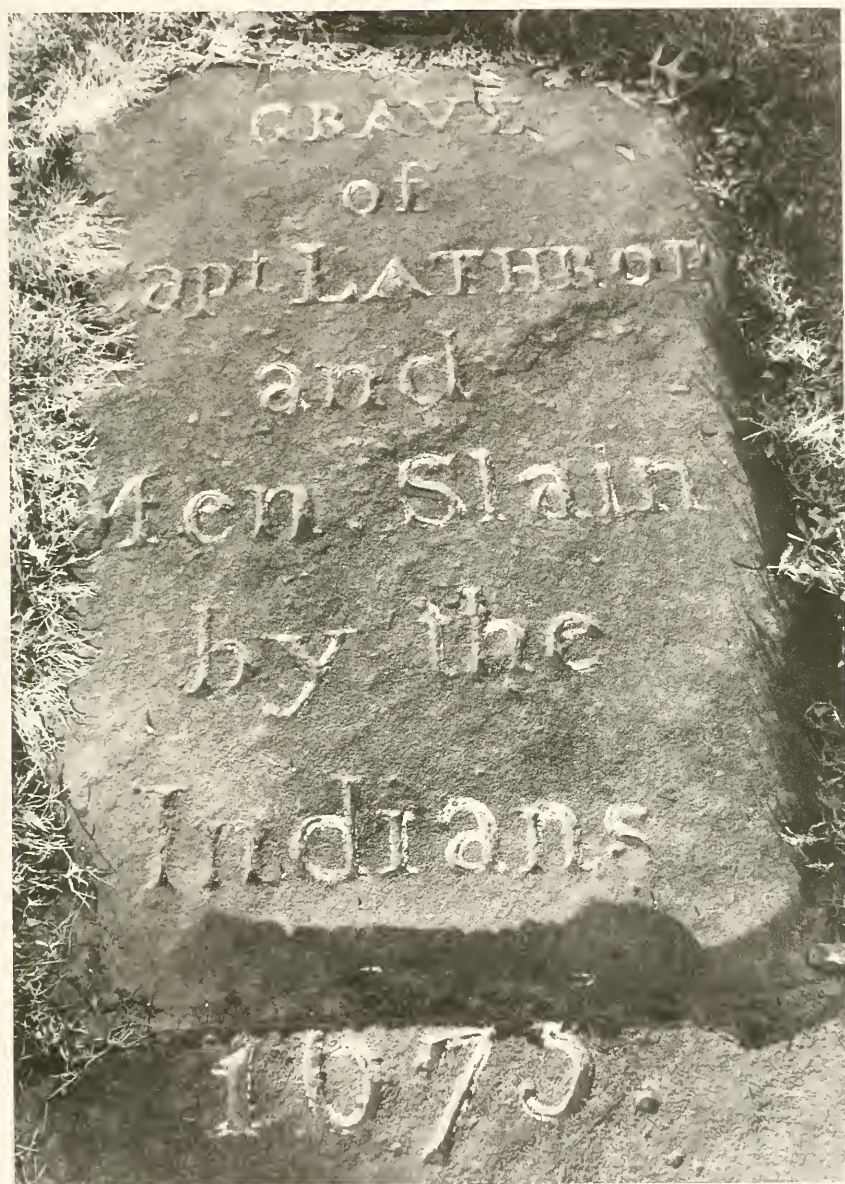 GRAVE
of
Capt LATHROP
and
Men Slain
by the
Indians
1675